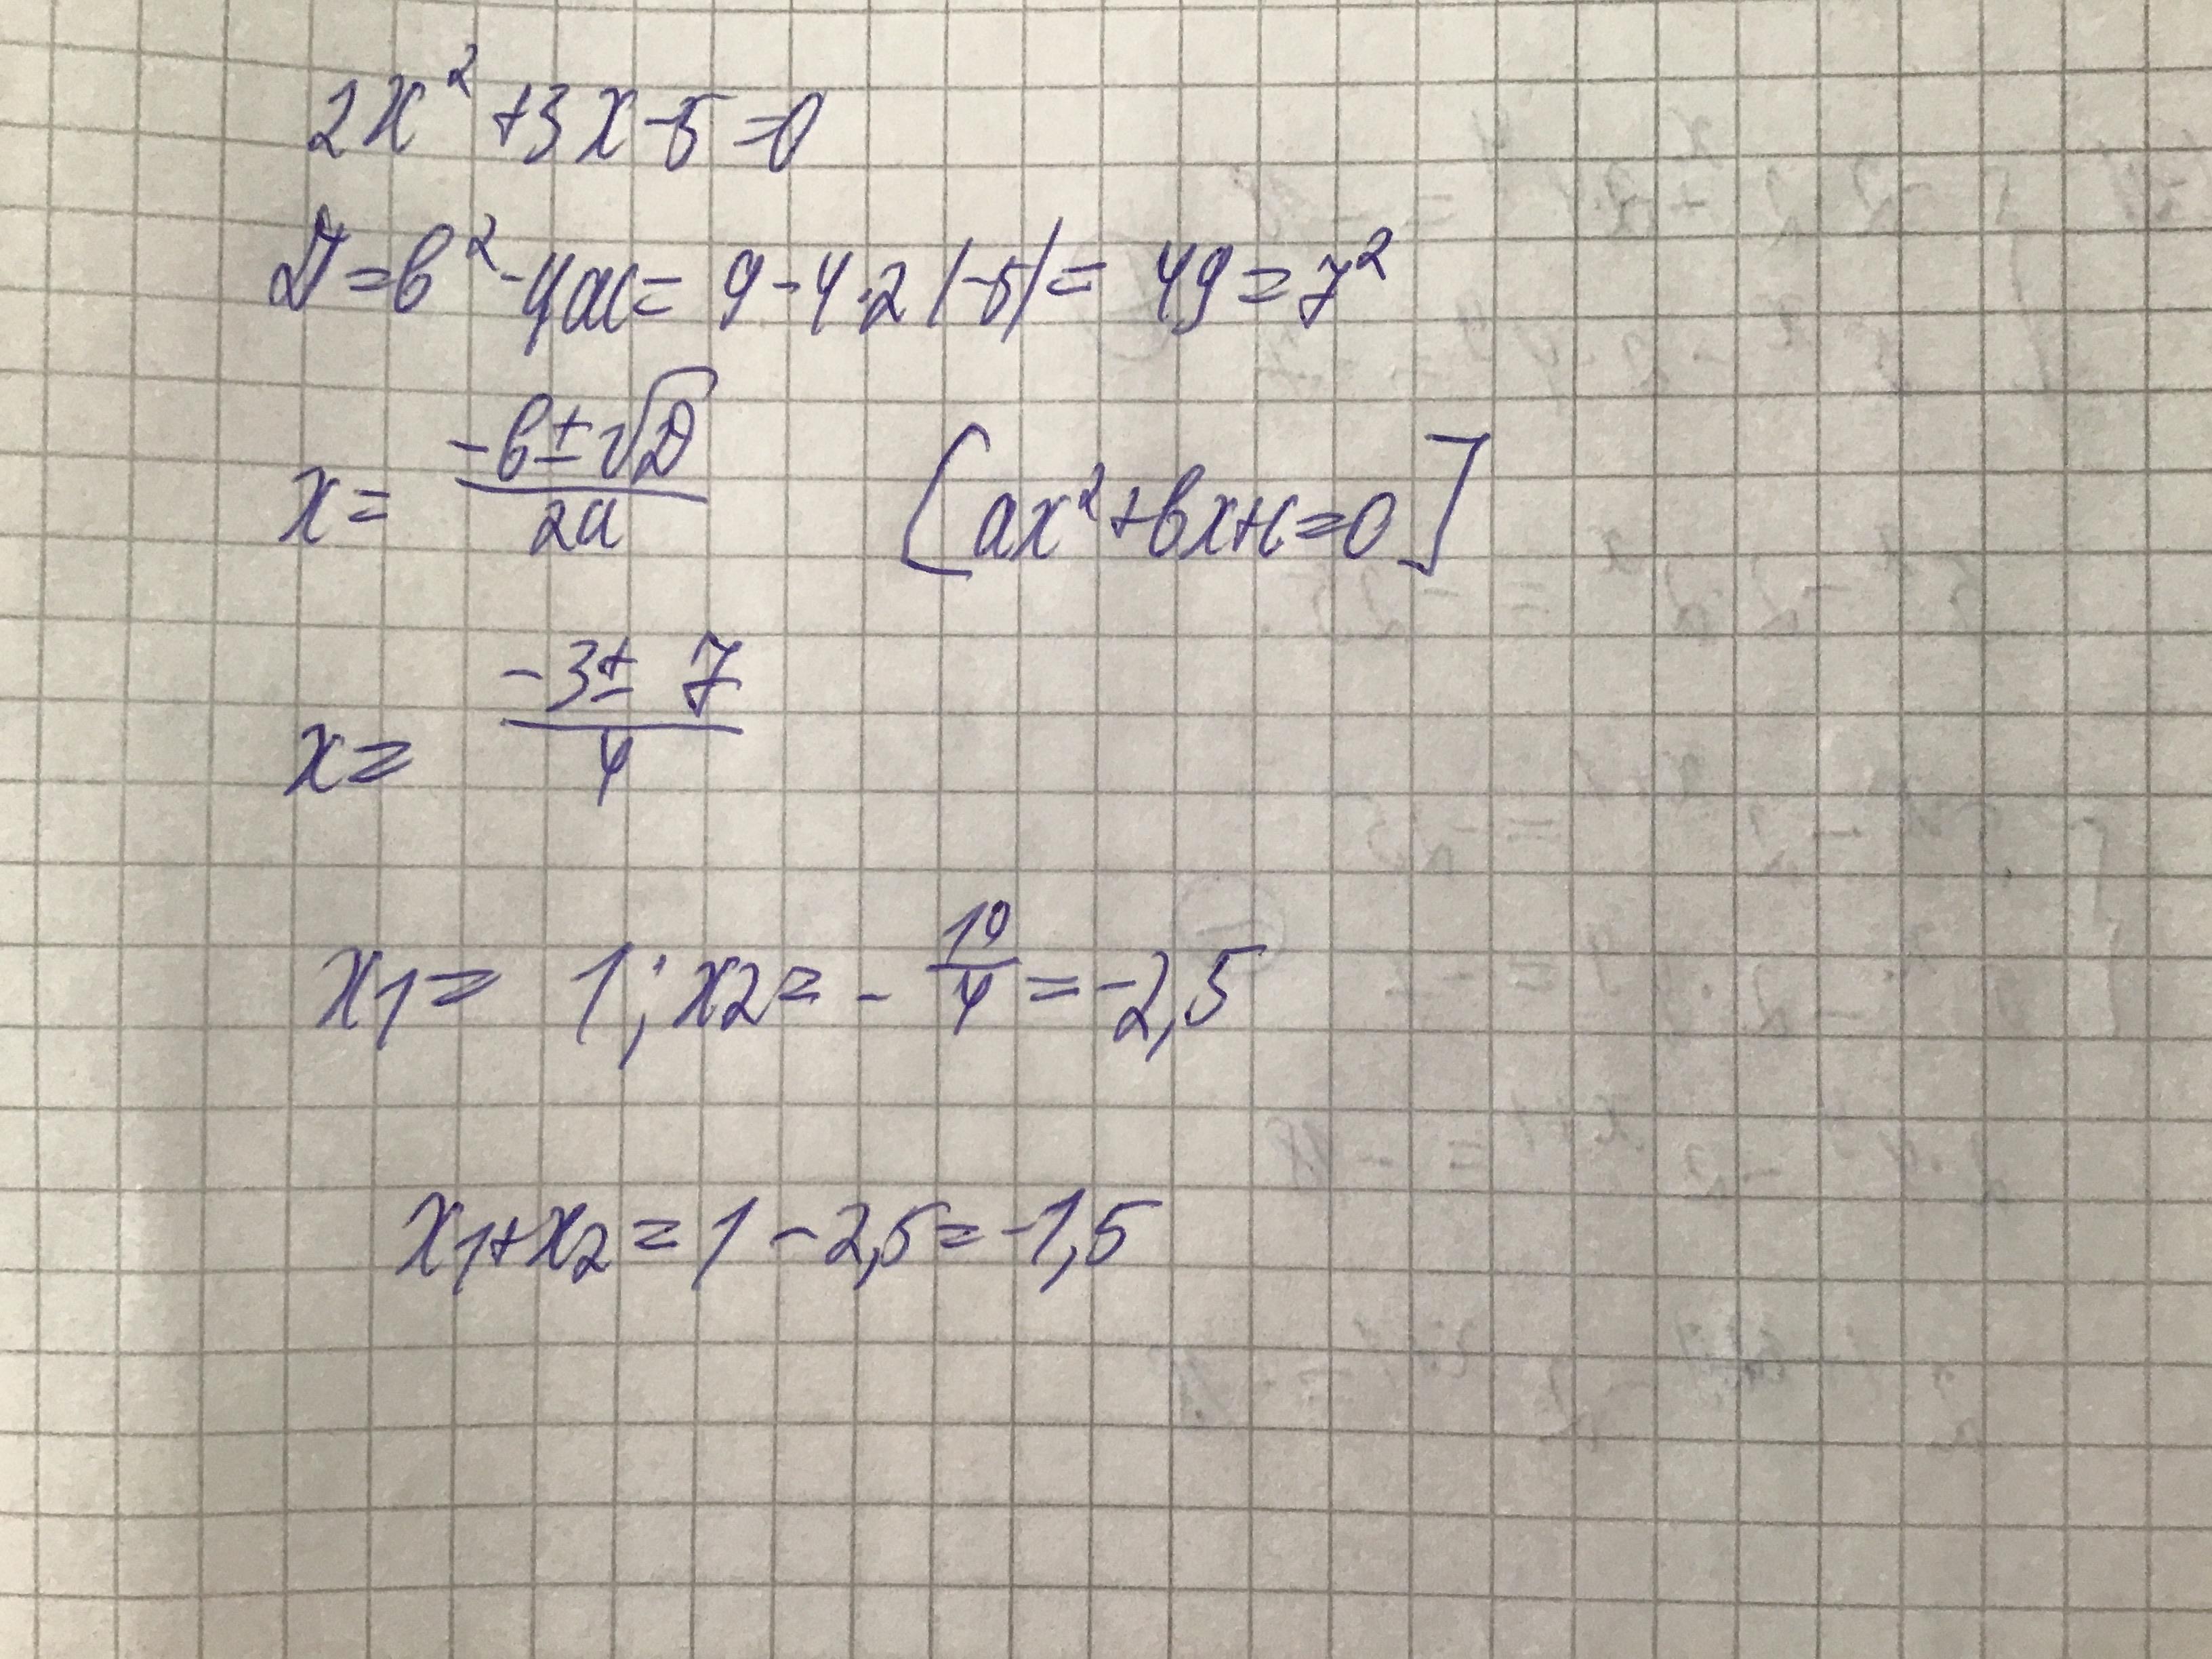 2x² + 3x - 5 = 0
D = b² - 4ac = 9 - 4·2(-5) = 49 = 7²
x = (-b ± √D)/(2a) [ax² + bx + c = 0]
x = (-3 ± 7)/4
x₁ = 1; x₂ = -10/4 = -2,5
x₁ + x₂ = 1 - 2,5 = -1,5